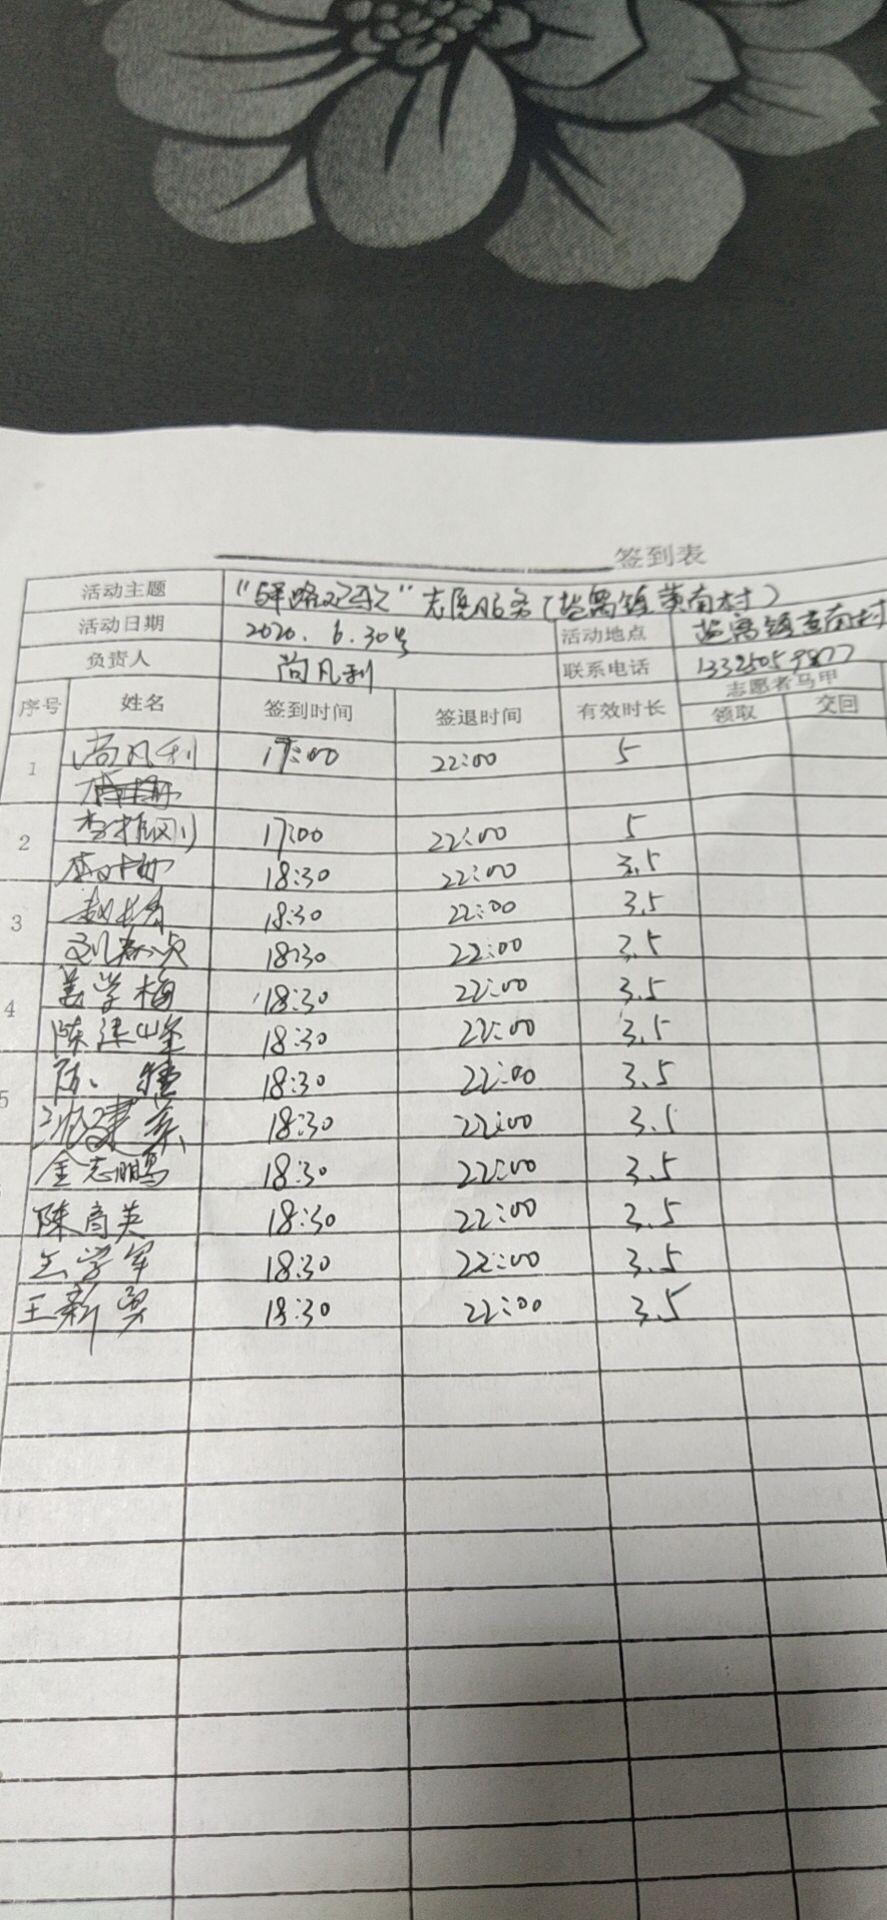 签到表
活动主题 "驿路欢歌"志愿服务(盐窝镇黄南村)
活动日期 2020.6.30号 活动地点 盐窝镇黄南村
负责人 尚凡利 联系电话
序号 姓名 签到时间 签退时间 有效时长 志愿者马甲
领取 交回
1 尚凡利 17:00 22:00 5
2 李振刚 17:00 22:00 5
18:30 22:00 3.5
3 18:30 22:00 3.5
18:30 22:00 3.5
4 姜学梅 18:30 22:00 3.5
陈建峰 18:30 22:00 3.5
5 18:30 22:00 3.5
18:30 22:00 3.5
金志鹏 18:30 22:00 3.5
陈育英 18:30 22:00 3.5
王学军 18:30 22:00 3.5
王新勇 18:30 22:00 3.5